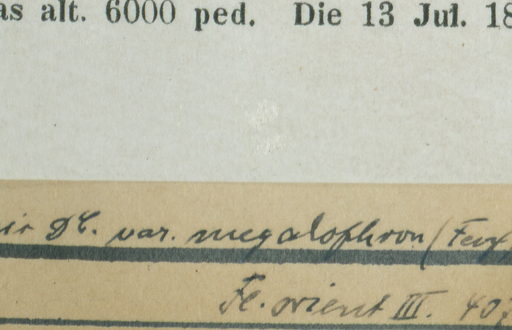 as alt. 6000 ped. Die 13 Jul. 18
DC. var. megalophron (
Fl. orient III. 407